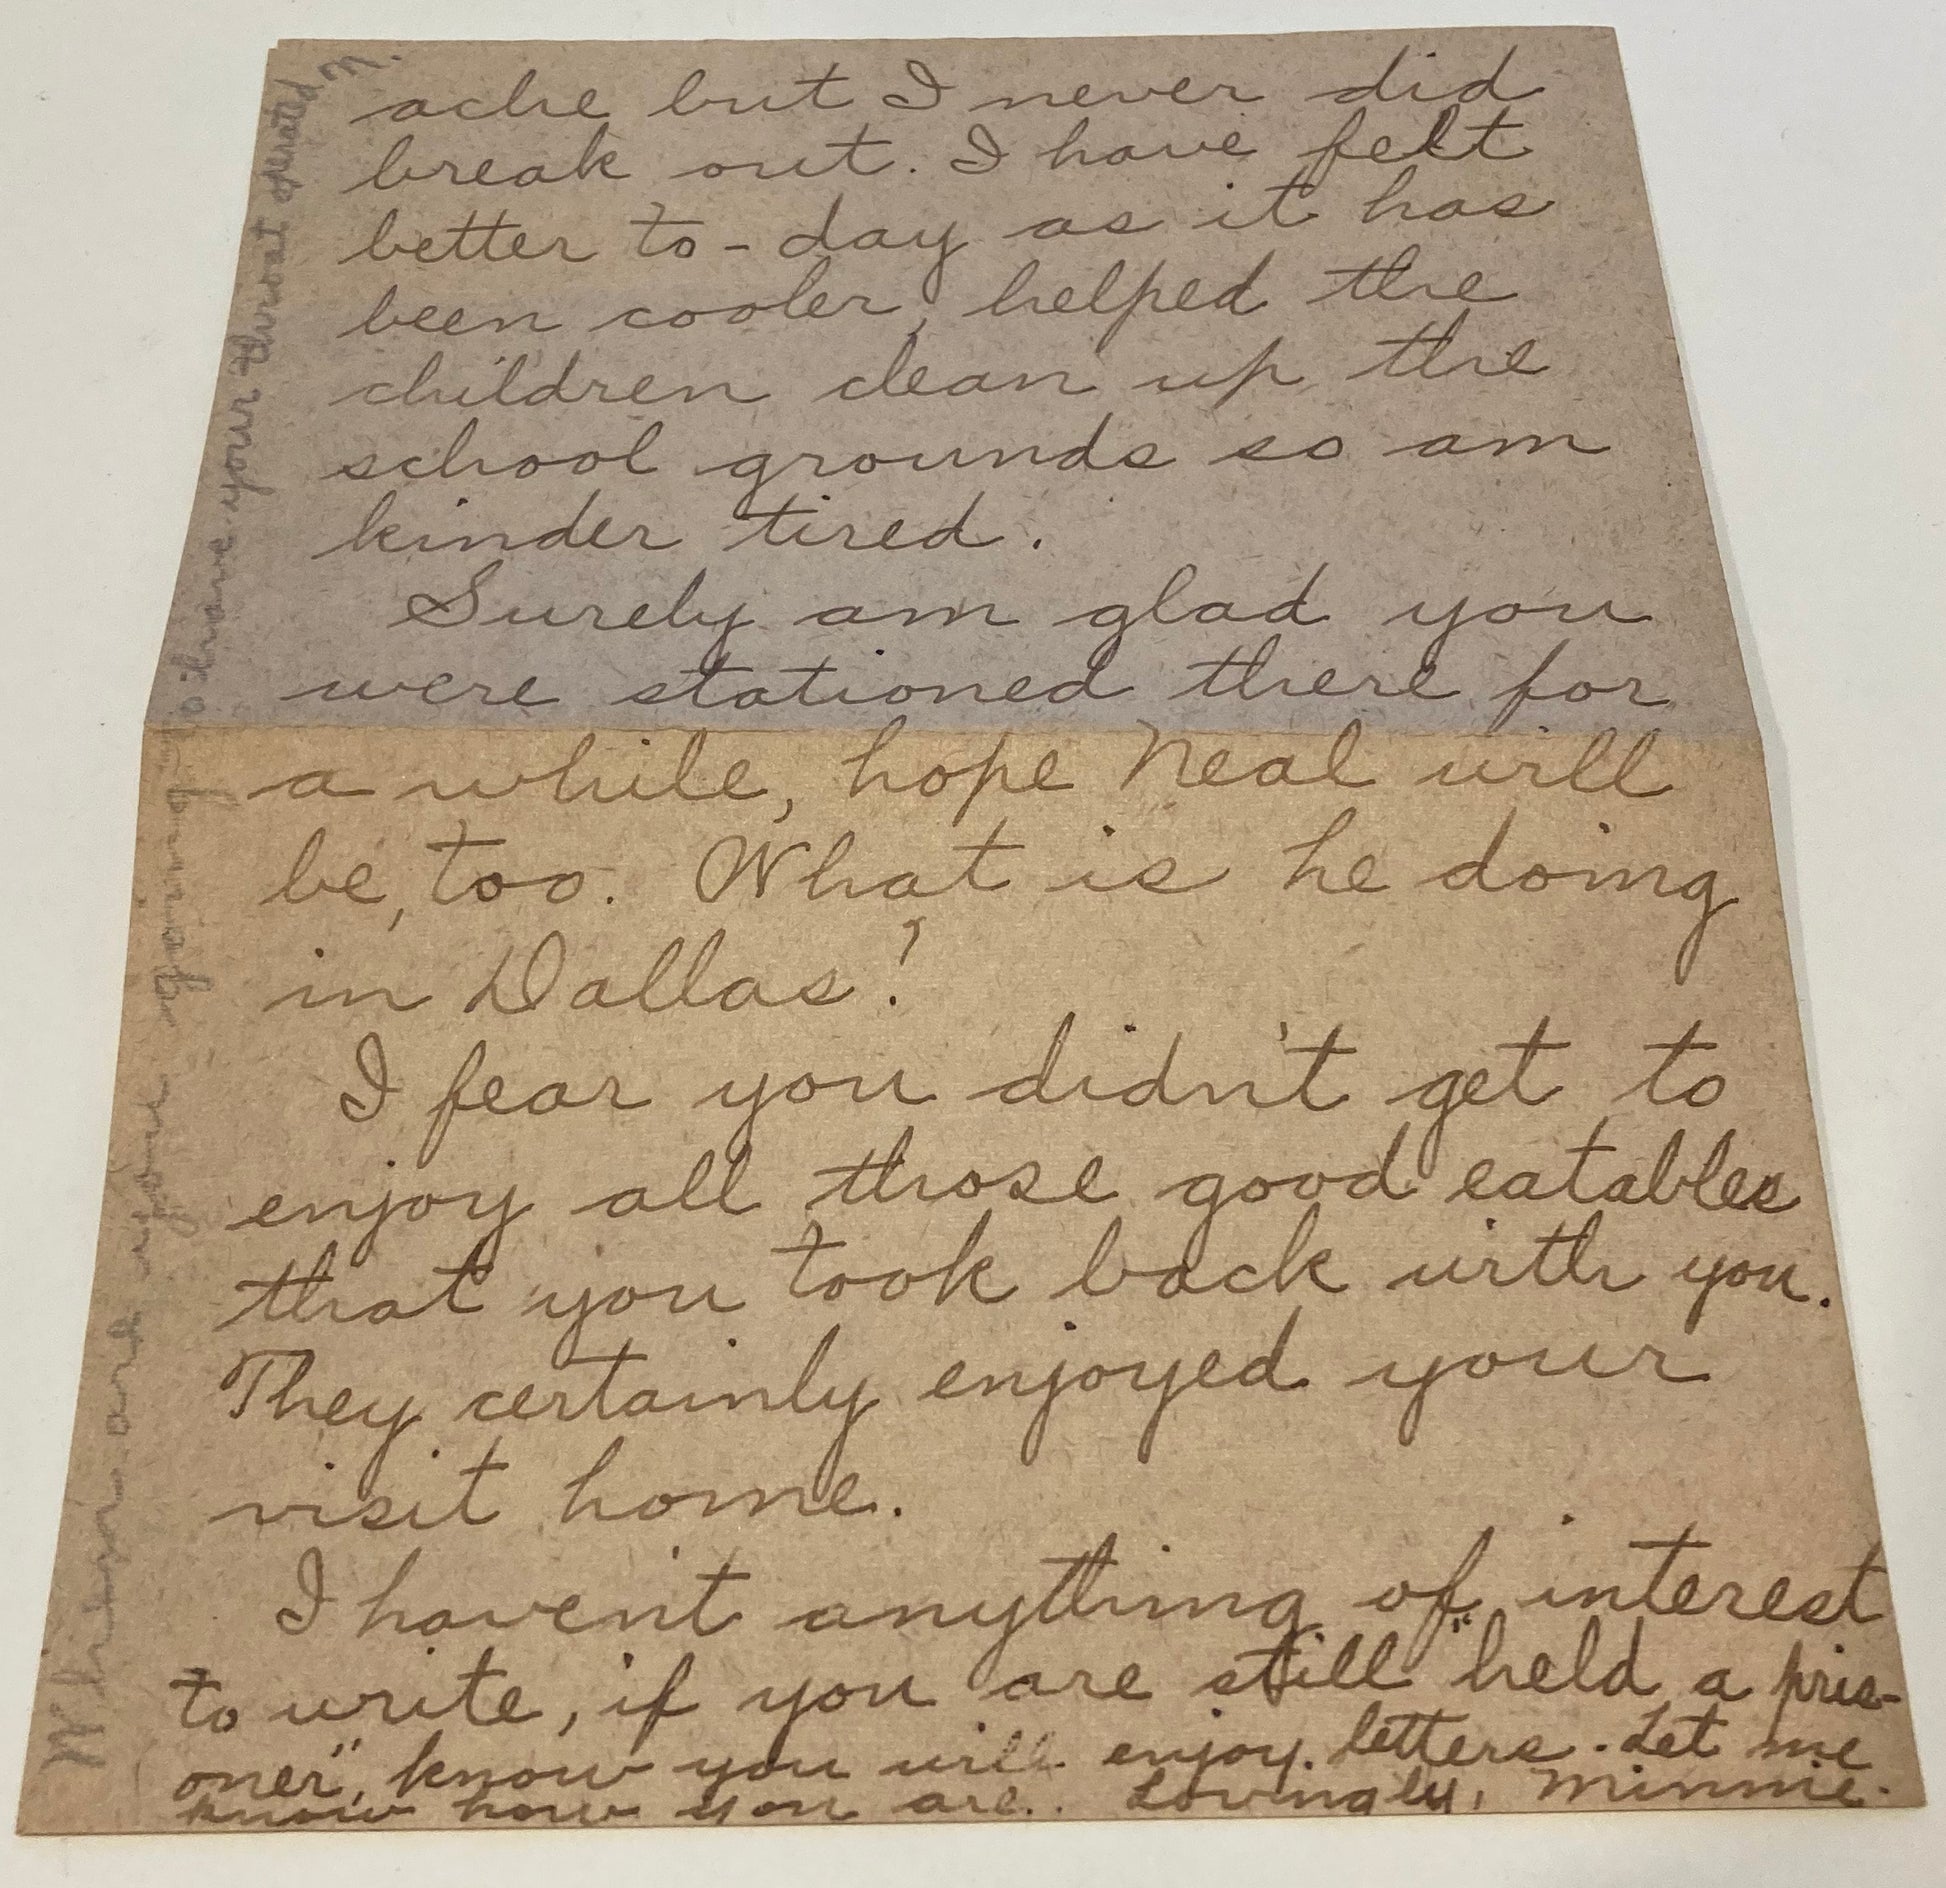 ache but I never did
break out. I have felt
better to-day as it has
been cooler, helped the
children clean up the
school grounds so am
kinder tired.
Surely am glad you
were stationed there for
a while, hope Neal will
be, too. What is he doing
in Dallas?
I fear you didn't get to
enjoy all those good eatables
that you took back with you.
They certainly enjoyed your
visit home.
I haven't anything of interest
to write, if you are still "held a pris-
oner", know you will enjoy letters. Let me
know how you are. Lovingly, Minnie.
When are you going to have your throat operated
M.